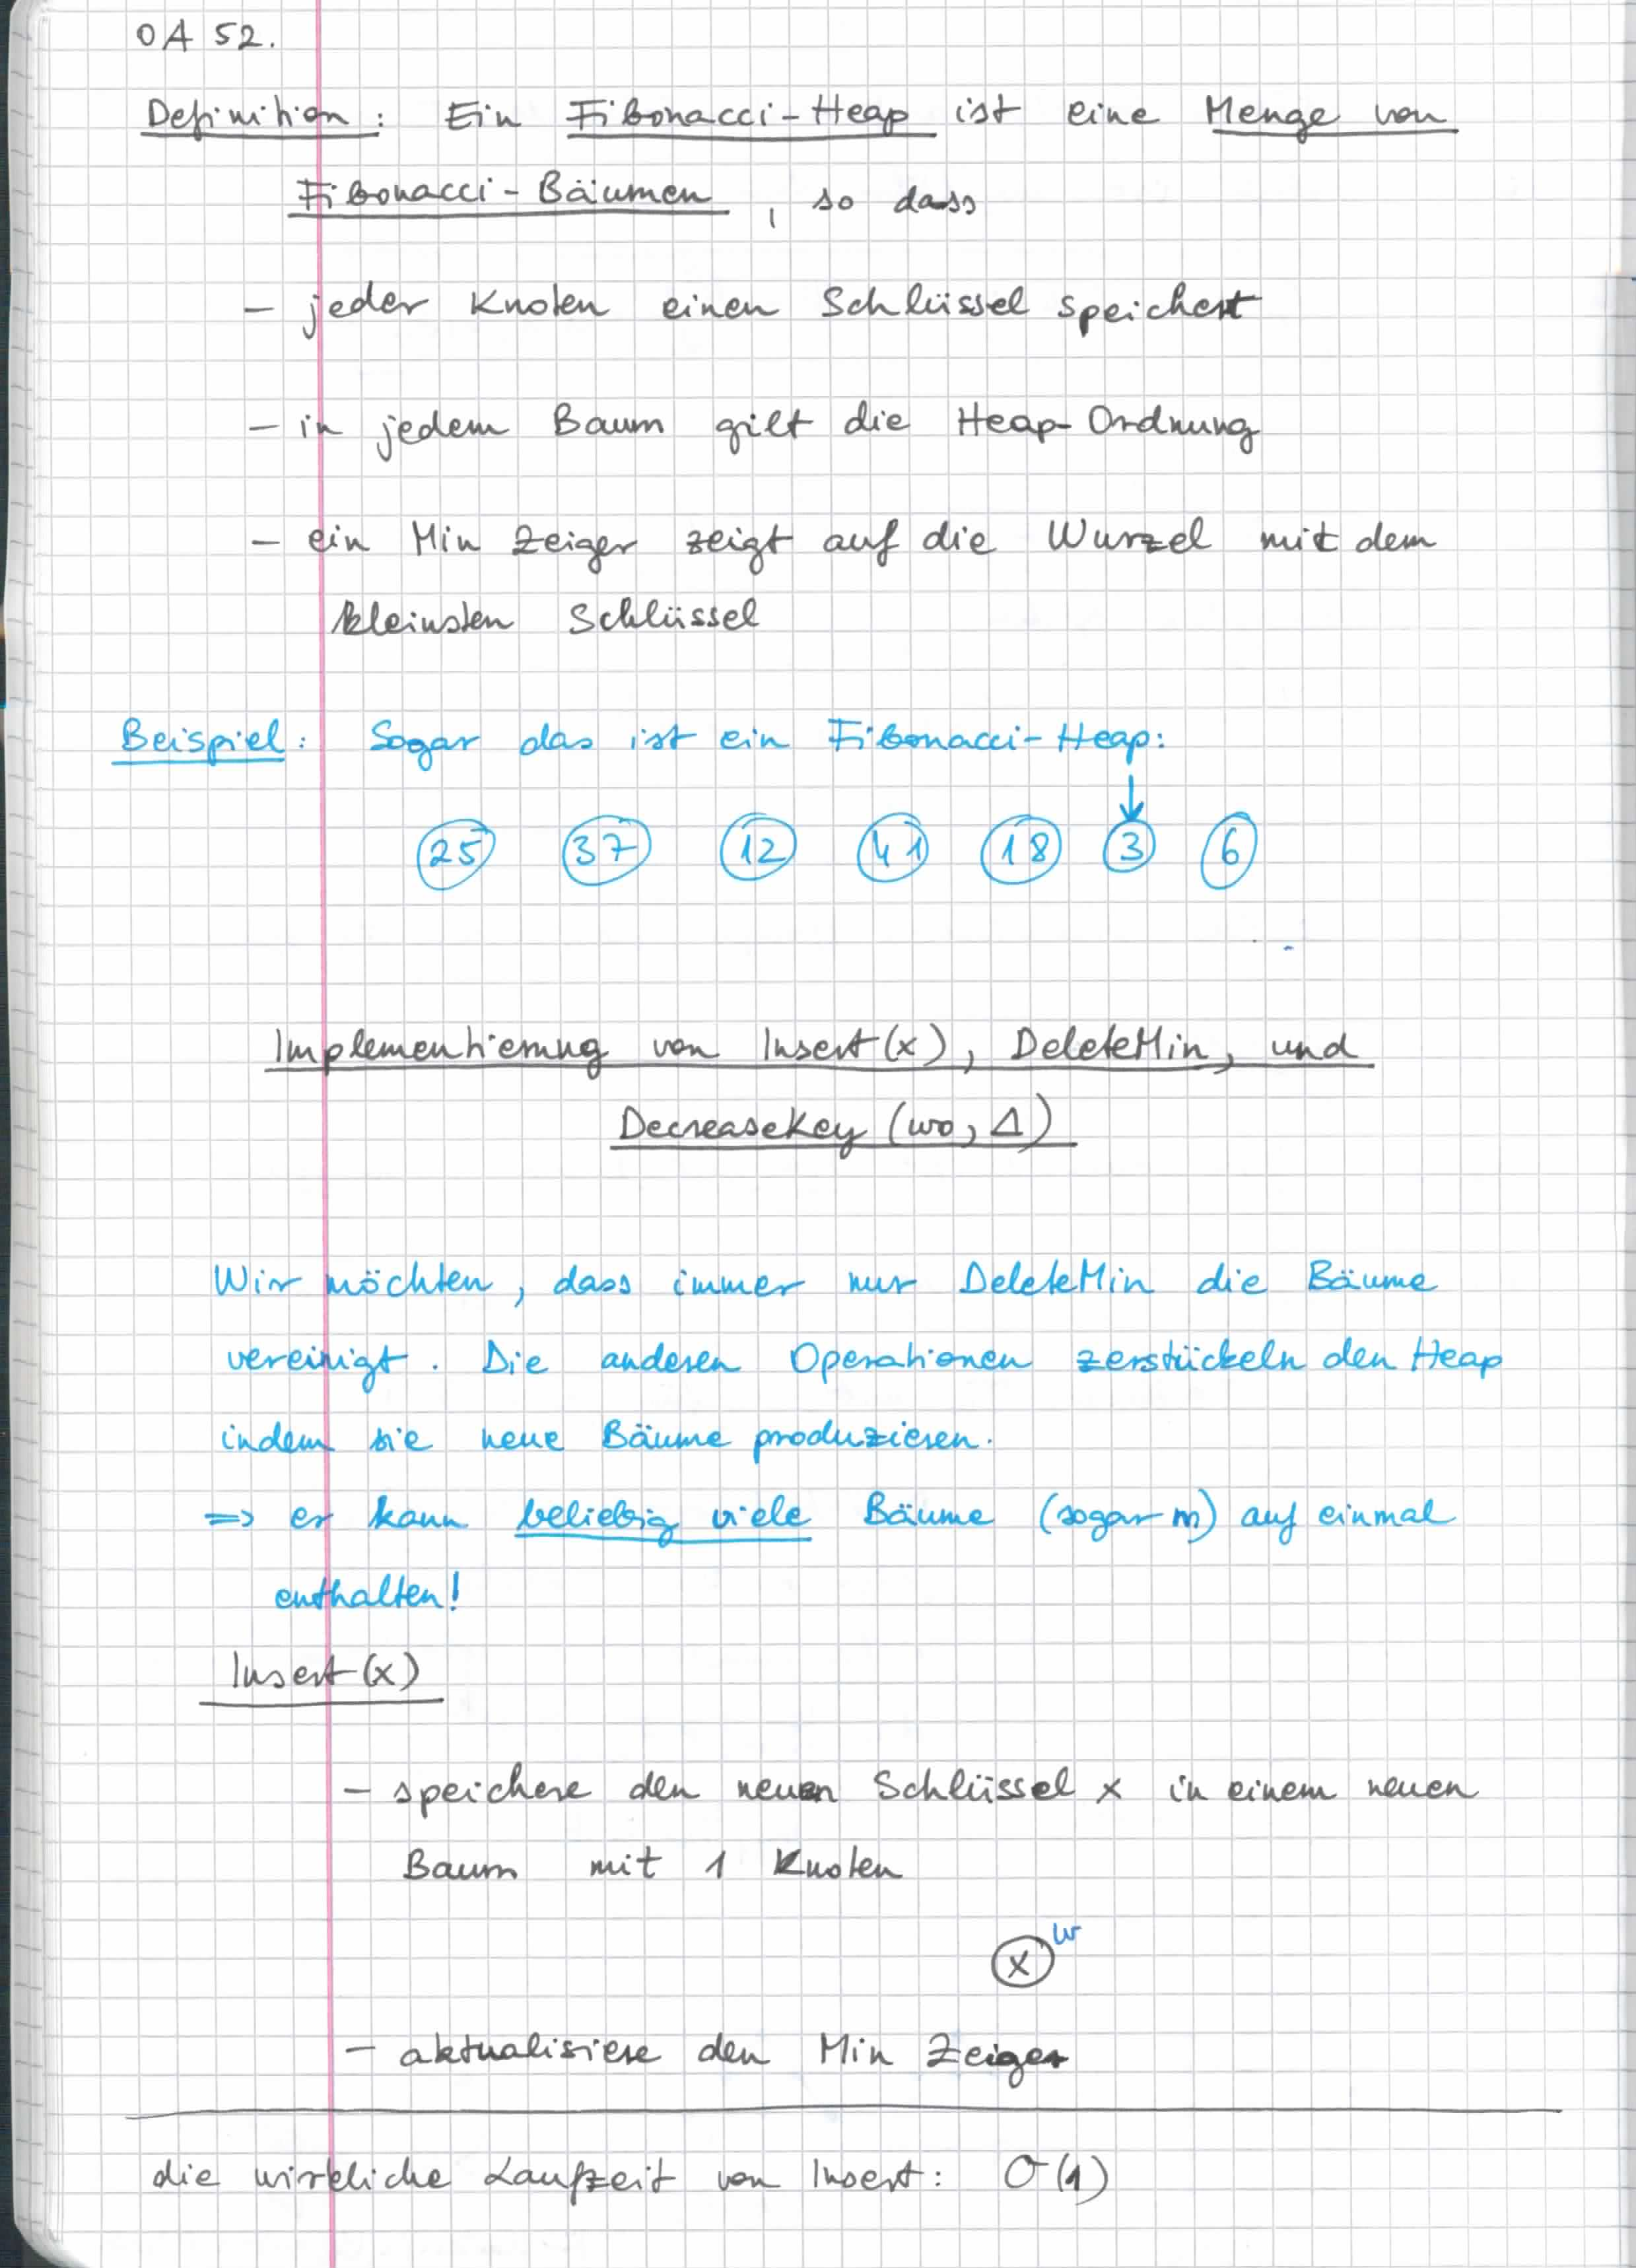 OA 52.
Definition: Ein Fibonacci-Heap ist eine Menge von
Fibonacci-Bäumen, so dass
- jeder Knoten einen Schlüssel speichert
- in jedem Baum gilt die Heap-Ordnung
- ein Min Zeiger zeigt auf die Wurzel mit dem
kleinsten Schlüssel
Beispiel: Sogar das ist ein Fibonacci-Heap:
25 37 12 41 18 3 6
Implementierung von Insert(x), DeleteMin, und
DecreaseKey (wo, Δ)
Wir möchten, dass immer nur DeleteMin die Bäume
vereinigt. Die anderen Operationen zerstückeln den Heap
indem sie neue Bäume produzieren.
=> er kann beliebig viele Bäume (sogar n) auf einmal
enthalten!
Insert(x)
- speichere den neuen Schlüssel x in einem neuen
Baum mit 1 Knoten
x w
- aktualisiere den Min Zeiger
die wirkliche Laufzeit von Insert: O(1)